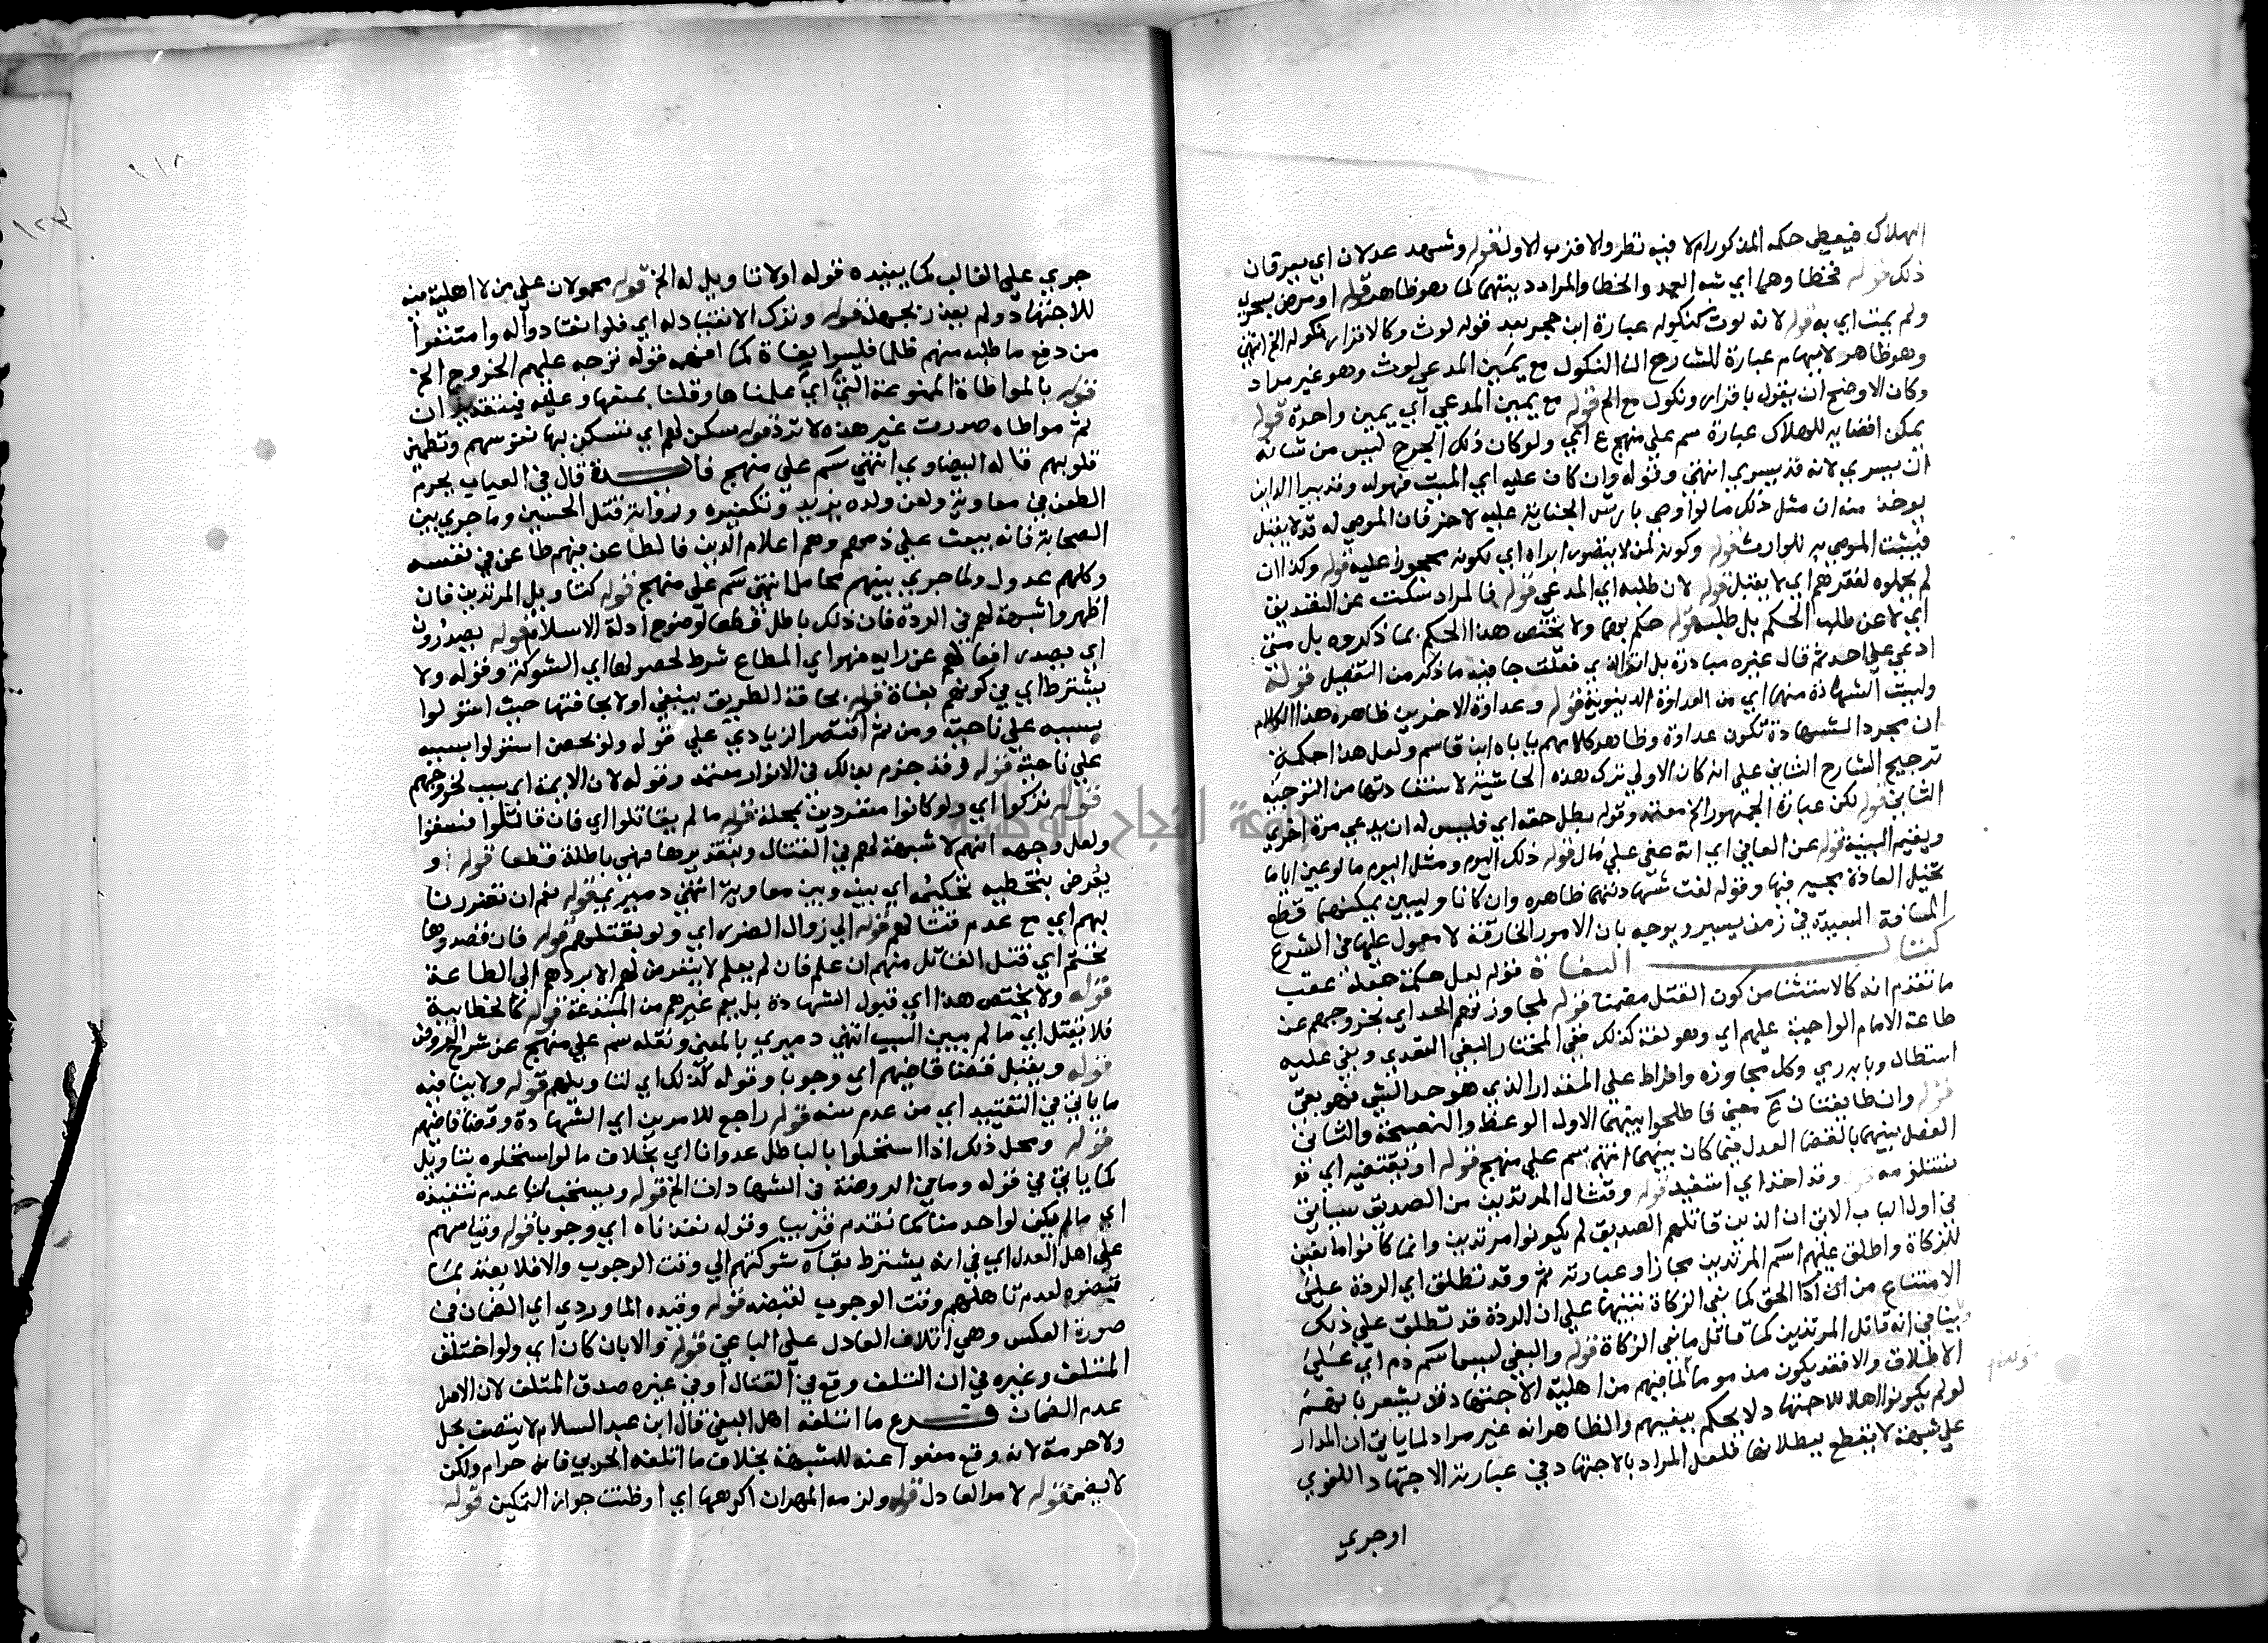 الهلاك فيعطي حكمه المذكور ام لا فيه نظر والاقرب الاول قوله وشهد عدلان اي يعرفان
ذلك قوله فخطا وهما اي شبه العمد والخطا والمراد دينهما كما هو ظاهر قوله او مرض
ولم يمت اي به قوله لانه لوث كنكوله عبارة ابن حجر بعد قوله لوث وكالاقرار نكوله الخ انتهى
وهو ظاهر لايهام عبارة الشارح ان النكول مع يمين المدعي لوث وهو غير مراد
وكان الاوضح ان يقول باقرار ونكول مع الخ قوله مع يمين المدعي اي يمين واحدة قوله
يمكن افضايه للهلاك عبارة سم علي منهج ع اي ولو كان ذلك الجرح ليس من شانه
ان يسري لانه قد يسري انتهى وقوله وان كان عليه اي الميت
يوخذ منه ان مثل ذلك ما لو اوصي بارش الجناية عليه لاخر فان الموصي له قد لا يقبل
فيثبت الموصي به للوارث قوله وكونه لمن لا يتصور ابراه اي لكونه محجورا عليه قوله وكذا ان
لم يحملوه لفقرهم اي لا يقبل قوله لان طلبه اي المدعي قوله فالمراد سكت عن التقدين
اي لا عن طلب الحكم بل طلبه قوله حكم بهما ولا يختص هذا الحكم بما ذكروه بل متى
ادعي علي احد ثم قال غيره مبادرة بل انا الذي فعلت جا فيه ما ذكر من التفصيل قوله
وليست الشهادة منها اي من العداوة الدينوية قوله وعداوة الاخرين ظاهره هذا الكلام
ان مجرد الشهادة تكون عداوة وظاهر كلامهم ياباه ابن قاسم ولعل هذا حكمة
ترجيح الشارح الثاني علي انه كان الاولي ترك هذه الحاشية لاستفادتها من التوجيه
الثاني قوله لكن عبارة الجمهور الخ معتمد وقوله بطل حقه اي فليس له ان يدعي مرة اخري
ويقيم البينة قوله عن العاقي اي انه عفي علي مال قوله ذلك اليوم ومثل اليوم ما لو عين اياما
تحيل العادة مجيه فيها وقوله لغت شهادتهما ظاهره وان كانا وليين يمكنهما قطع
المسافة البعيدة في زمن يسير ويوجه بان الامور الخارقة لا معول عليها في الشرع
كتاب البغاة قوله لعل حكمة جعله عقب
ما تقدم انه كالاستثنا من كون القتل مضمنا قوله لمجاوزتهم الحد اي بخروجهم عن
طاعة الامام الواجبة عليهم اي وهو لغة كذلك ففي المختار البغي التعدي وبغي عليه
استطال وبابه رمي وكل مجاوزه وافراط علي المقدار الذي هو حد الشي فهو بغي
قوله وان طايفتان ع معني فاصلحوا بينهما الاول الوعظ والنصيحة والثاني
الفصل بينهما بالقضا العدل فيما كان بينهما انتهى سم علي منهج قوله او تقتضيه اي
تستلزمه قوله وقد اخذ اي استفيد قوله وقتال المرتدين من الصديق سياتي
في اول الباب الاتي ان الذين قاتلهم الصديق لم يكونوا مرتدين وانما كانوا مانعين
للزكاة واطلق عليهم اسم المرتدين مجازا وعبارته ثم وقد تطلق اي الردة علي
الامتناع من ادا الحق كما نعي الزكاة تنبيها علي ان الردة قد تطلق علي ذلك
ينافي انه قاتل المرتدين كما قاتل مانعي الزكاة قوله والبغي ليس اسم ذم اي علي
الاطلاق والا فقد يكون مذموما لما فيهم من اهلية الاجتهاد قد يشعر بانهم
لو لم يكونوا اهلا للاجتهاد لا يحكم ببغيهم والظاهر انه غير مراد لما ياتي ان المدار
علي شبهة لا يقطع ببطلانها فلعل المراد بالاجتهاد في عبارته الاجتهاد اللغوي
او جري
جري علي الغالب كما يفيده قوله اولا تاويل له الخ قوله محمولان علي من لا اهلية فيه
للاجتهاد ولم يعذر بجهله قوله وترك الانقياد له اي فلو انقادوا له وامتنعوا
من دفع ما طلبه منهم ظلما فليسوا بغاة كما افهمه قوله توجه عليهم الخروج الخ
قوله بالمواطاة الممنوعة التي اي علمناها وقلنا بمنعها وعليه فيتقدير ان
ثم مواطاه صدرت غير هذه لا ترد قوله سكن لهم اي تسكن بها نفوسهم وتطمين
قلوبهم قاله البيضاوي انتهي سم علي منهج فائدة قال في العباب يحرم
الطعن في معاوية ولعن ولده يزيد وتكفيره ورواية قتل الحسين وما جري بين
الصحابة فانه يبعث علي ذمهم وهم اعلام الدين فالطاعن فيهم طاعن في نفسه
وكلهم عدول ولما جري بينهم محامل انتهي سم علي منهج قوله كتاويل المرتدين فان
اظهروا شبهة لهم في الردة فان ذلك باطل قطعا لوضوح ادلة الاسلام قوله يصدرون
اي يصدر افعالهم عن رايه فهو اي المطاع شرط لحصولها اي الشوكة وقوله ولا
يشترط اي في كونهم بغاة قوله بحافة الطريق ينبغي او لا بحافتها حيث استولوا
بسببه علي ناحية ومن ثم اقتصر الزيادي علي قوله ولو بحصن استولوا بسببه
علي ناحية قوله وقد جزم بذلك في الانوار معتمد وقوله لان الايمة اي سبب لخروجهم
قوله تركوا اي ولو كانوا منفردين بمحلة قوله ما لم يقاتلوا اي فان قاتلوا فسقوا
ولعل وجهه انهم لا شبهة لهم في القتال وبتقديرها فهي باطلة قطعا قوله او
يعرض بتخطيه تحكيمه اي بينه وبين معاوية انتهي دميري قوله نعم ان تضررنا
بهم اي مع عدم قتالهم قوله الي زوال الضرر اي ولو بقتلهم قوله فان قصدوها
تحتم اي قتل القاتل منهم ان علم فان لم يعلم لا يتعرض لهم الا بردهم الي الطاعة
قوله ولا يختص هذا اي قبول الشهادة بل يعم غيرهم من المبتدعة قوله كالخطابية
فلا يقبل اي ما لم يبين السبب انتهي دميري بالمعني ونقله سم علي منهج عن شرح الروض
قوله ويقبل قضا قاضيهم اي وجوبا وقوله كذلك اي لنا وبلهم قوله ولا ينافيه
ما ياتي في التقييد اي من عدم سنه قوله راجع للامرين اي الشهادة وقضا قاضيهم
قوله ومحل ذلك اذا استحلوا بالباطل عدوانا اي بخلاف ما لو استحلوه بتاويل
كما ياتي في قوله وما في الروضة في الشهادات الخ قوله ويستحب لنا عدم تنفيذه
اي ما لم يكن لواحد منا كما تقدم قريبا وقوله نفذناه اي وجوبا قوله وقياسهم
علي اهل العدل اي في انه يشترط بقاء شوكتهم الي وقت الوجوب والا فلا يعتد بما
قبضوه لعدم تاهلهم وقت الوجوب لقبضه قوله وقيده الماوردي اي الضمان في
صورة العكس وهي اتلاف العادل علي الباغي قوله والا بان كان اي ولو اختلف
المتلف وغيره في ان التلف وقع في القتال او في غيره صدق المتلف لان الاصل
عدم الضمان فرع ما اتلفه اهل البغي قال ابن عبد السلام لا يتصف بحل
ولا حرمة لانه وقع معفوا عنه للشبهة بخلاف ما اتلفه الحربي فانه حرام ولكن
لا يضمن قوله لامر العادل قوله ولزمه المهر ان اكرهها اي او ظنت جواز التمكين قوله